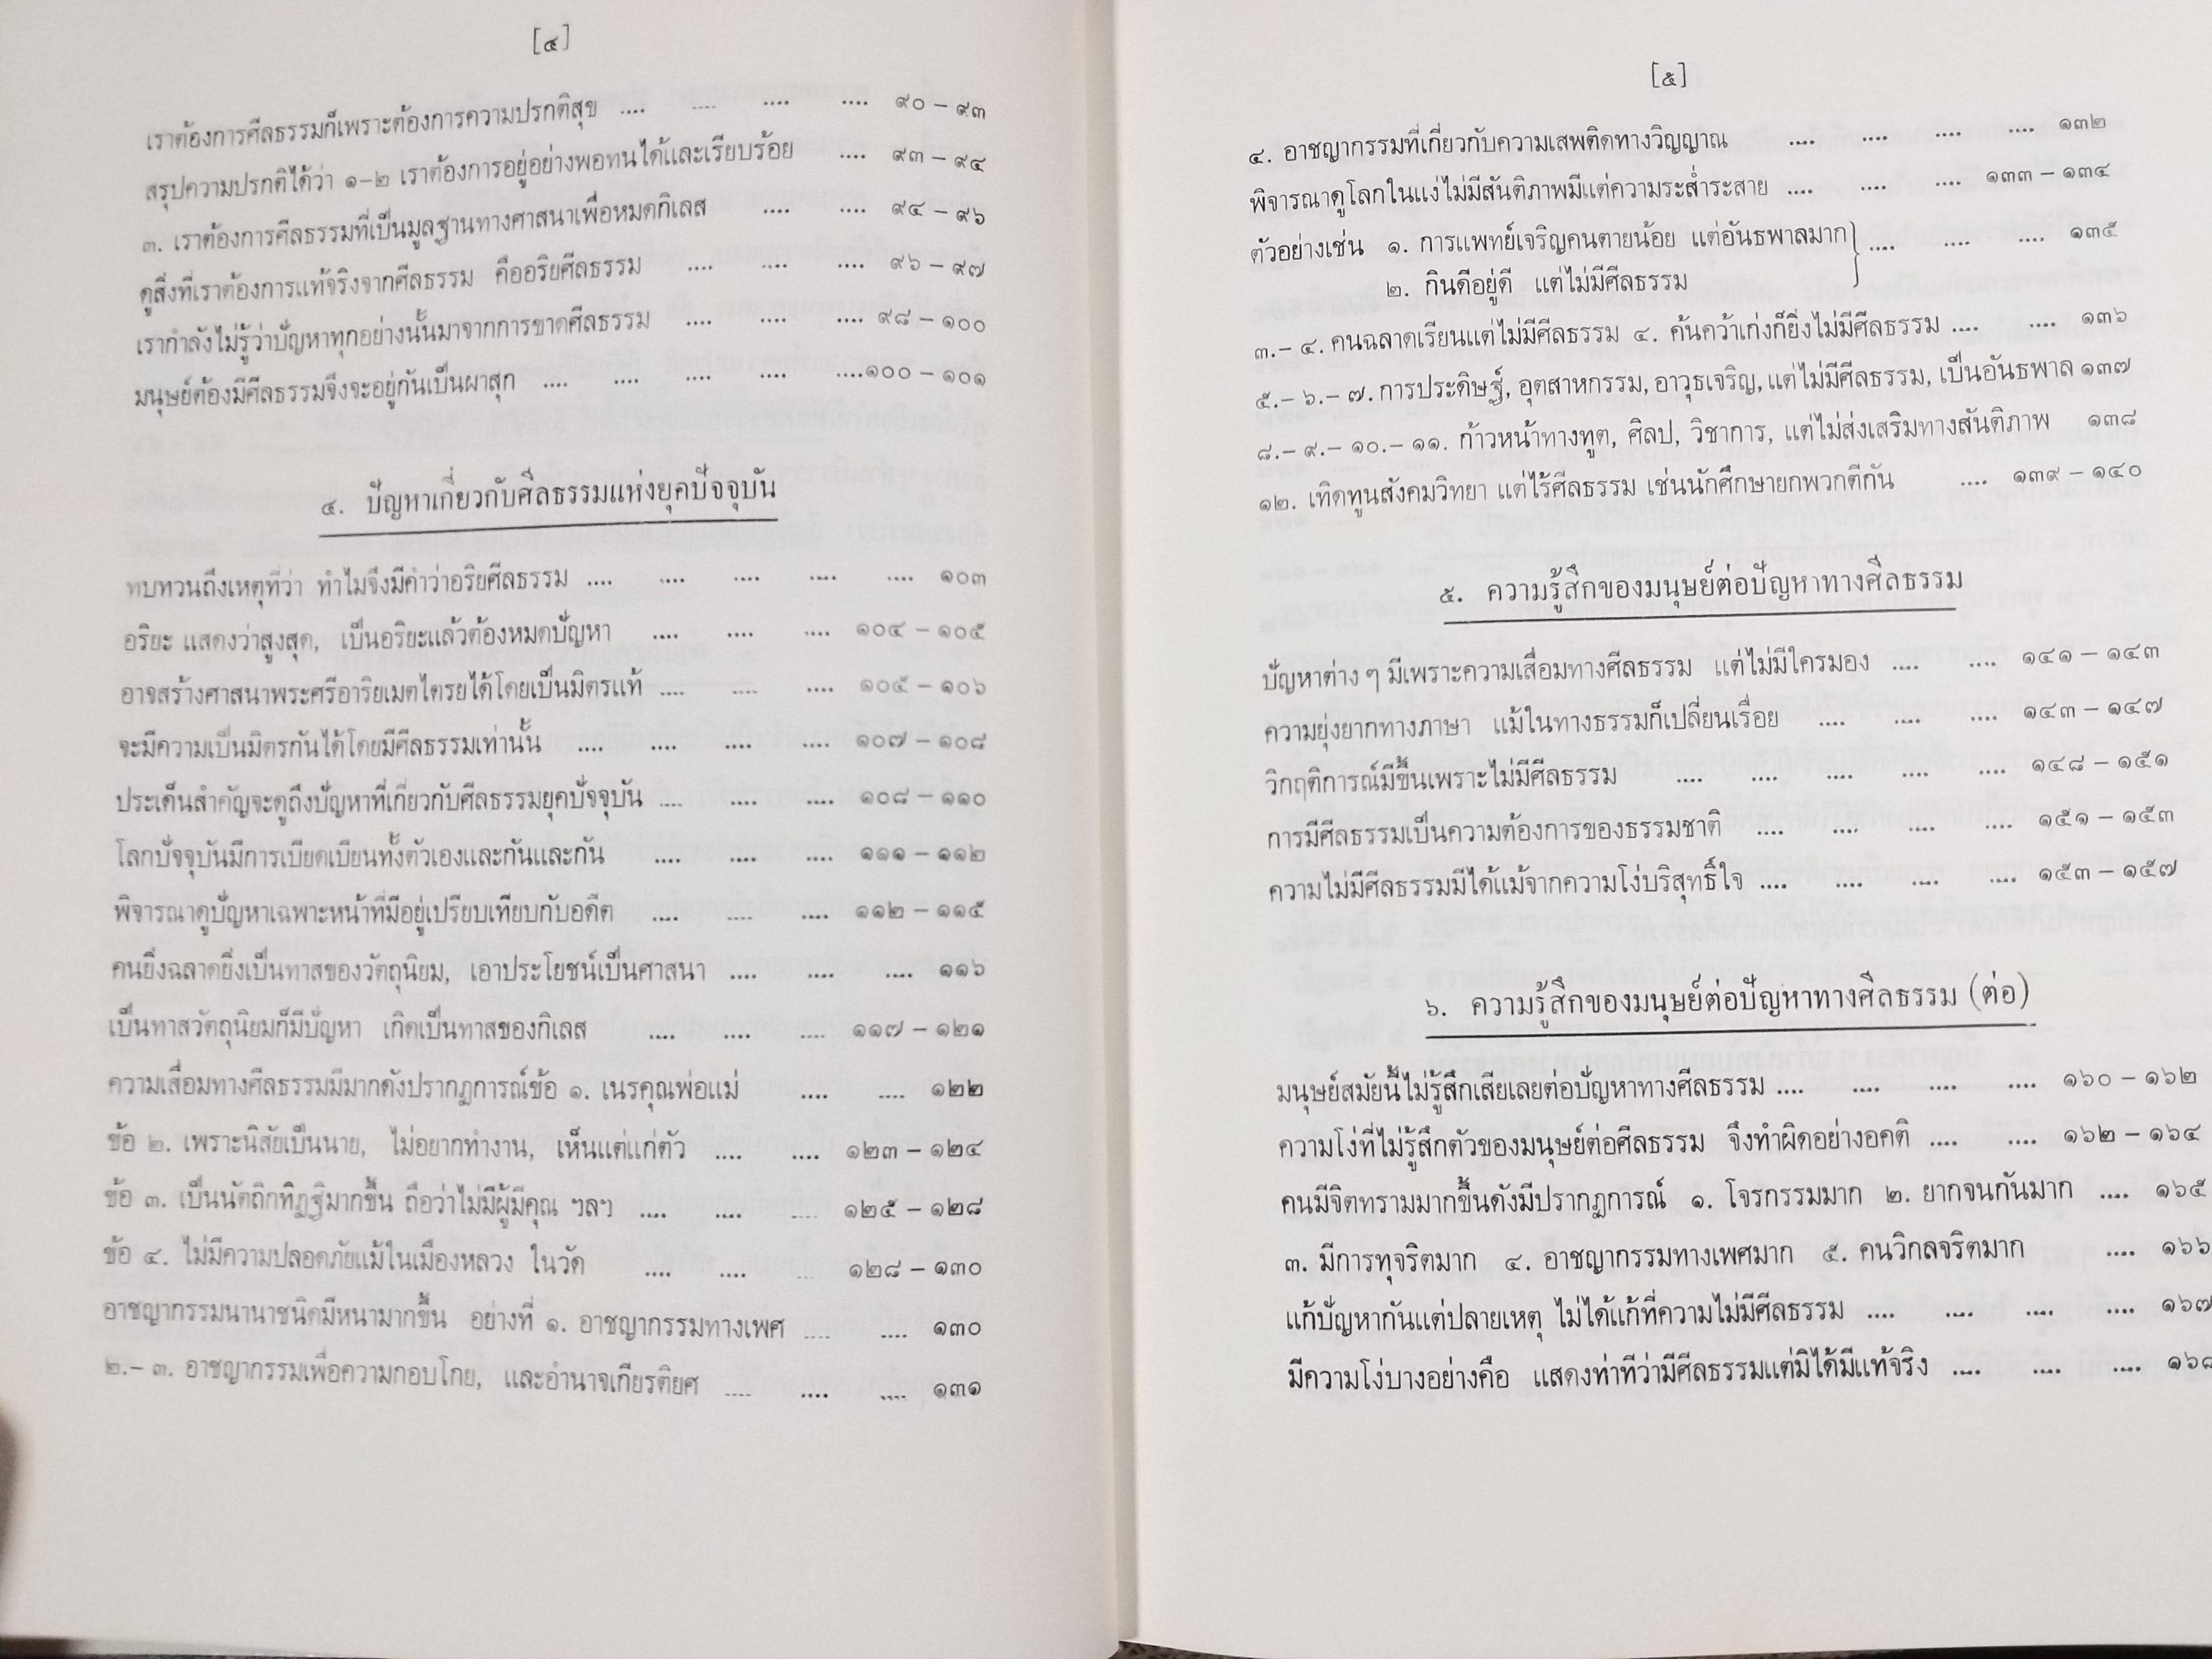 [๔]
เราต้องการศีลธรรมก็เพราะต้องการความปรกติสุข .... .... .... .... ๙๐ – ๙๓
สรุปความปรกติได้ว่า ๑–๒ เราต้องการอยู่อย่างพอทนได้และเรียบร้อย .... ๙๓ – ๙๔
๓. เราต้องการศีลธรรมที่เป็นมูลฐานทางศาสนาเพื่อหมดกิเลส .... .... ๙๔ – ๙๖
ดูสิ่งที่เราต้องการแท้จริงจากศีลธรรม คืออริยศีลธรรม .... .... .... ๙๖ – ๙๗
เรากำลังไม่รู้ว่าปัญหาทุกอย่างนั้นมาจากการขาดศีลธรรม .... .... .... ๙๘ – ๑๐๐
มนุษย์ต้องมีศีลธรรมจึงจะอยู่กันเป็นผาสุก .... .... .... .... ....๑๐๐ – ๑๐๑
๔. ปัญหาเกี่ยวกับศีลธรรมแห่งยุคปัจจุบัน
ทบทวนถึงเหตุที่ว่า ทำไมจึงมีคำว่าอริยศีลธรรม .... .... .... .... .... ๑๐๓
อริยะ แสดงว่าสูงสุด, เป็นอริยะแล้วต้องหมดปัญหา .... .... .... ๑๐๔ – ๑๐๕
อาจสร้างศาสนาพระศรีอาริยเมตไตรยได้โดยเป็นมิตรแท้ .... .... .... ๑๐๕ – ๑๐๖
จะมีความเป็นมิตรกันได้โดยมีศีลธรรมเท่านั้น .... .... .... .... ๑๐๗ – ๑๐๘
ประเด็นสำคัญจะดูถึงปัญหาที่เกี่ยวกับศีลธรรมยุคปัจจุบัน .... .... .... ๑๐๘ – ๑๑๐
โลกปัจจุบันมีการเบียดเบียนทั้งตัวเองและกันและกัน .... .... .... ๑๑๑ – ๑๑๒
พิจารณาดูปัญหาเฉพาะหน้าที่มีอยู่เปรียบเทียบกับอดีต .... .... .... ๑๑๒ – ๑๑๕
คนยิ่งฉลาดยิ่งเป็นทาสของวัตถุนิยม, เอาประโยชน์เป็นศาสนา .... .... .... ๑๑๖
เป็นทาสวัตถุนิยมก็มีปัญหา เกิดเป็นทาสของกิเลส .... .... .... ๑๑๗ – ๑๒๑
ความเสื่อมทางศีลธรรมมีมากดังปรากฏการณ์ข้อ ๑. เนรคุณพ่อแม่ .... .... ๑๒๒
ข้อ ๒. เพราะนิสัยเป็นนาย, ไม่อยากทำงาน, เห็นแต่แก่ตัว .... .... ๑๒๓ – ๑๒๔
ข้อ ๓. เป็นนัตถิกทิฏฐิมากขึ้น ถือว่าไม่มีผู้มีคุณ ฯลฯ .... .... .... ๑๒๕ – ๑๒๘
ข้อ ๔. ไม่มีความปลอดภัยแม้ในเมืองหลวง ในวัด .... .... ... ๑๒๘ – ๑๓๐
อาชญากรรมนานาชนิดมีหนามากขึ้น อย่างที่ ๑. อาชญากรรมทางเพศ .... .... ๑๓๐
๒.– ๓. อาชญากรรมเพื่อความกอบโกย, และอำนาจเกียรติยศ .... .... .... ๑๓๑
[๕]
๔. อาชญากรรมที่เกี่ยวกับความเสพติดทางวิญญาณ .... .... .... .... ๑๓๒
พิจารณาดูโลกในแง่ไม่มีสันติภาพมีแต่ความระส่ำระสาย .... .... .... ๑๓๓ – ๑๓๔
ตัวอย่างเช่น ๑. การแพทย์เจริญคนตายน้อย แต่อันธพาลมาก} .... .... .... ๑๓๕
๒. กินดีอยู่ดี แต่ไม่มีศีลธรรม
๓.– ๔. คนฉลาดเรียนแต่ไม่มีศีลธรรม ๔. ค้นคว้าเก่งก็ยิ่งไม่มีศีลธรรม .... .... ๑๓๖
๕.– ๖.– ๗. การประดิษฐ์, อุตสาหกรรม, อาวุธเจริญ, แต่ไม่มีศีลธรรม, เป็นอันธพาล ๑๓๗
๘.– ๙.– ๑๐.– ๑๑. ก้าวหน้าทางทูต, ศิลป, วิชาการ, แต่ไม่ส่งเสริมทางสันติภาพ ๑๓๘
๑๒. เทิดทูนสังคมวิทยา แต่ไร้ศีลธรรม เช่นนักศึกษายกพวกตีกัน .... ๑๓๙ – ๑๔๐
๕. ความรู้สึกของมนุษย์ต่อปัญหาทางศีลธรรม
ปัญหาต่าง ๆ มีเพราะความเสื่อมทางศีลธรรม แต่ไม่มีใครมอง .... .... ๑๔๑ – ๑๔๓
ความยุ่งยากทางภาษา แม้ในทางธรรมก็เปลี่ยนเรื่อย .... .... .... ๑๔๓ – ๑๔๗
วิกฤติการณ์มีขึ้นเพราะไม่มีศีลธรรม .... .... .... .... .... ๑๔๘ – ๑๕๑
การมีศีลธรรมเป็นความต้องการของธรรมชาติ .... .... .... .... ๑๕๑ – ๑๕๓
ความไม่มีศีลธรรมมีได้แม้จากความโง่บริสุทธิ์ใจ .... .... .... .... ๑๕๓ – ๑๕๗
๖. ความรู้สึกของมนุษย์ต่อปัญหาทางศีลธรรม (ต่อ)
มนุษย์สมัยนี้ไม่รู้สึกเสียเลยต่อปัญหาทางศีลธรรม .... .... .... .... ๑๖๐ – ๑๖๒
ความโง่ที่ไม่รู้สึกตัวของมนุษย์ต่อศีลธรรม จึงทำผิดอย่างอคติ .... .... ๑๖๒ – ๑๖๔
คนมีจิตทรามมากขึ้นดังมีปรากฏการณ์ ๑. โจรกรรมมาก ๒. ยากจนกันมาก .... ๑๖๕
๓. มีการทุจริตมาก ๔. อาชญากรรมทางเพศมาก ๕. คนวิกลจริตมาก .... ๑๖๖
แก้ปัญหากันแต่ปลายเหตุ ไม่ได้แก้ที่ความไม่มีศีลธรรม .... .... .... .... ๑๖๗
มีความโง่บางอย่างคือ แสดงท่าทีว่ามีศีลธรรมแต่มิได้มีแท้จริง .... .... .... ๑๖๘